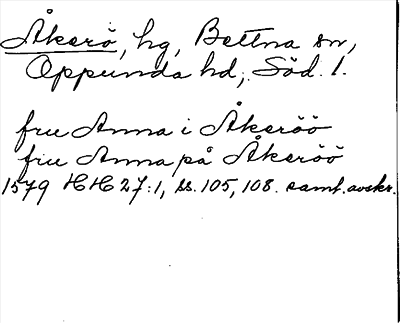 Åkerö, hg, Bettna sn,
Oppunda hd, Söd. l.
fru Anna i Åkeröö
fru Anna på Åkeröö
1579 HH 27:1, ss. 105, 108. samt. avskr.